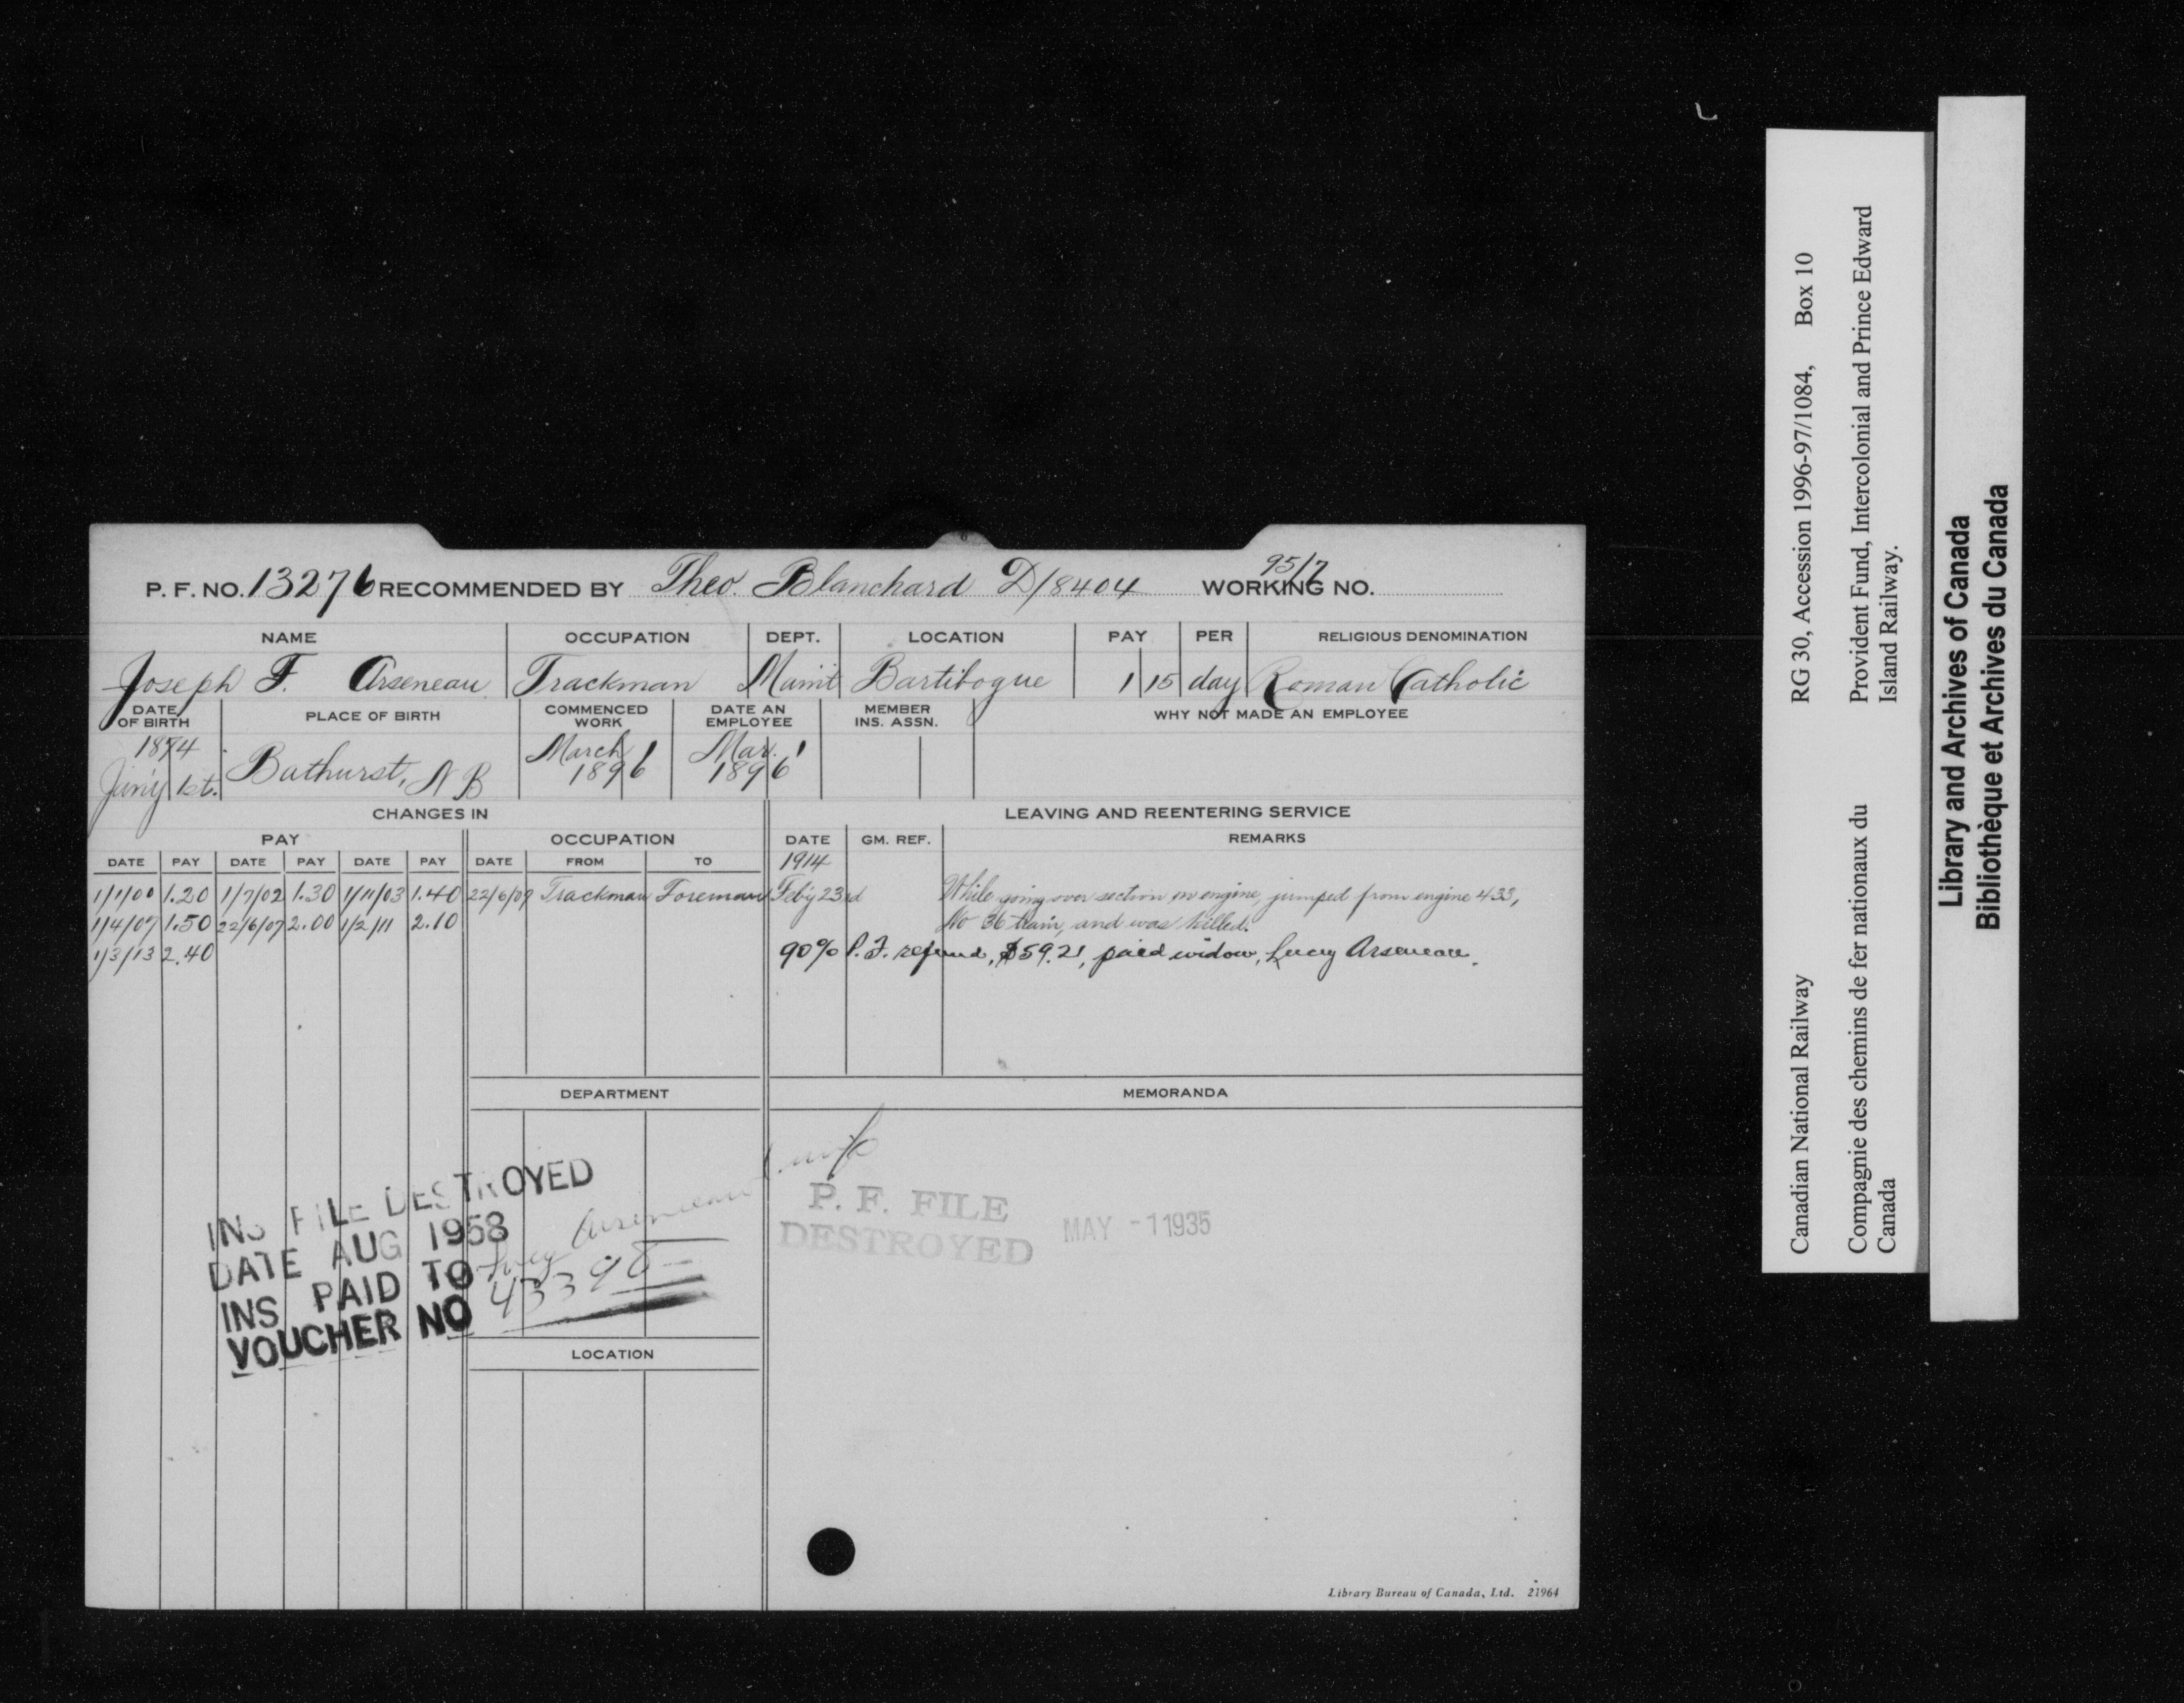 95/7
P. F. NO. 13276 RECOMMENDED BY Theo. Blanchard D/8404 WORKING NO.
NAME OCCUPATION DEPT. LOCATION PAY PER RELIGIOUS DENOMINATION
Joseph F. Arseneau Trackman Maint Bartibogue 1 15 day Roman Catholic
DATE OF BIRTH PLACE OF BIRTH COMMENCED WORK DATE AN EMPLOYEE MEMBER INS. ASSN. WHY NOT MADE AN EMPLOYEE
1874 March 1 Mar. 1
Jan'y 1st. Bathurst, N B 1896 1896
CHANGES IN LEAVING AND REENTERING SERVICE
PAY OCCUPATION DATE GM. REF. REMARKS
DATE PAY DATE PAY DATE PAY DATE FROM TO 1914
1/1/00 1.20 1/7/02 1.30 1/11/03 1.40 22/6/07 Trackman Foreman Feb'y 23rd While going over section on engine, jumped from engine 433,
1/4/07 1.50 22/6/07 2.00 1/2/11 2.10 No 36 train, and was killed.
1/3/13 2.40 90% P. F. refund, $59.21, paid widow, Lucy Arseneau.
DEPARTMENT MEMORANDA
INS FILE DESTROYED
DATE AUG 1958
INS PAID TO Lucy Arseneau wife
VOUCHER NO 43398
P. F. FILE
DESTROYED MAY -1 1935
LOCATION
Library Bureau of Canada, Ltd. 21964
Canadian National Railway RG 30, Accession 1996-97/1084, Box 10
Compagnie des chemins de fer nationaux du
Canada
Provident Fund, Intercolonial and Prince Edward
Island Railway.
Library and Archives of Canada
Bibliothèque et Archives du Canada